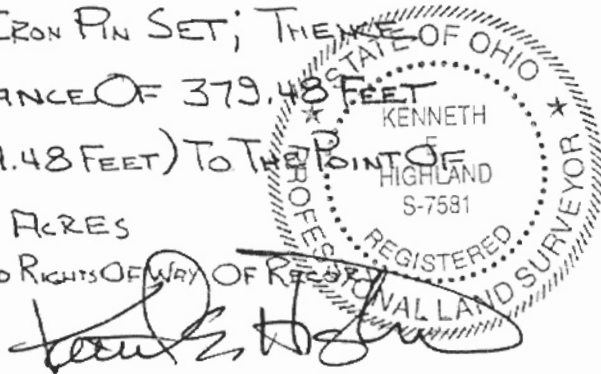 IRON PIN SET; THENCE
ANCE OF 379.48 FEET
.48 FEET) TO THE POINT OF
ACRES
RIGHTS OF WAY OF RECORD
STATE OF OHIO
KENNETH
HIGHLAND
S-7581
REGISTERED
PROFESSIONAL LAND SURVEYOR